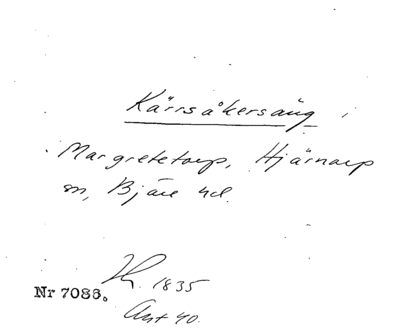 Kärrsåkersäng i
Margretetorp, Hjärnarp
sn, Bjäre hd.
1835
Nr 7086.
Avt 40.